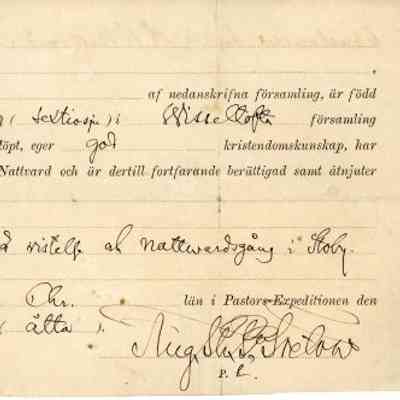 af nedanskrifna församling, är född
( sextiosju ) i Wisseltofta församling
löpt, eger god kristendomskunskap, har
Nattvard och är dertill fortfarande berättigad samt åtnjuter
vistelse och nattvardsgång i Stoby.
Chr. län i Pastors-Expeditionen den
( åtta ).
Aug.
P. L.